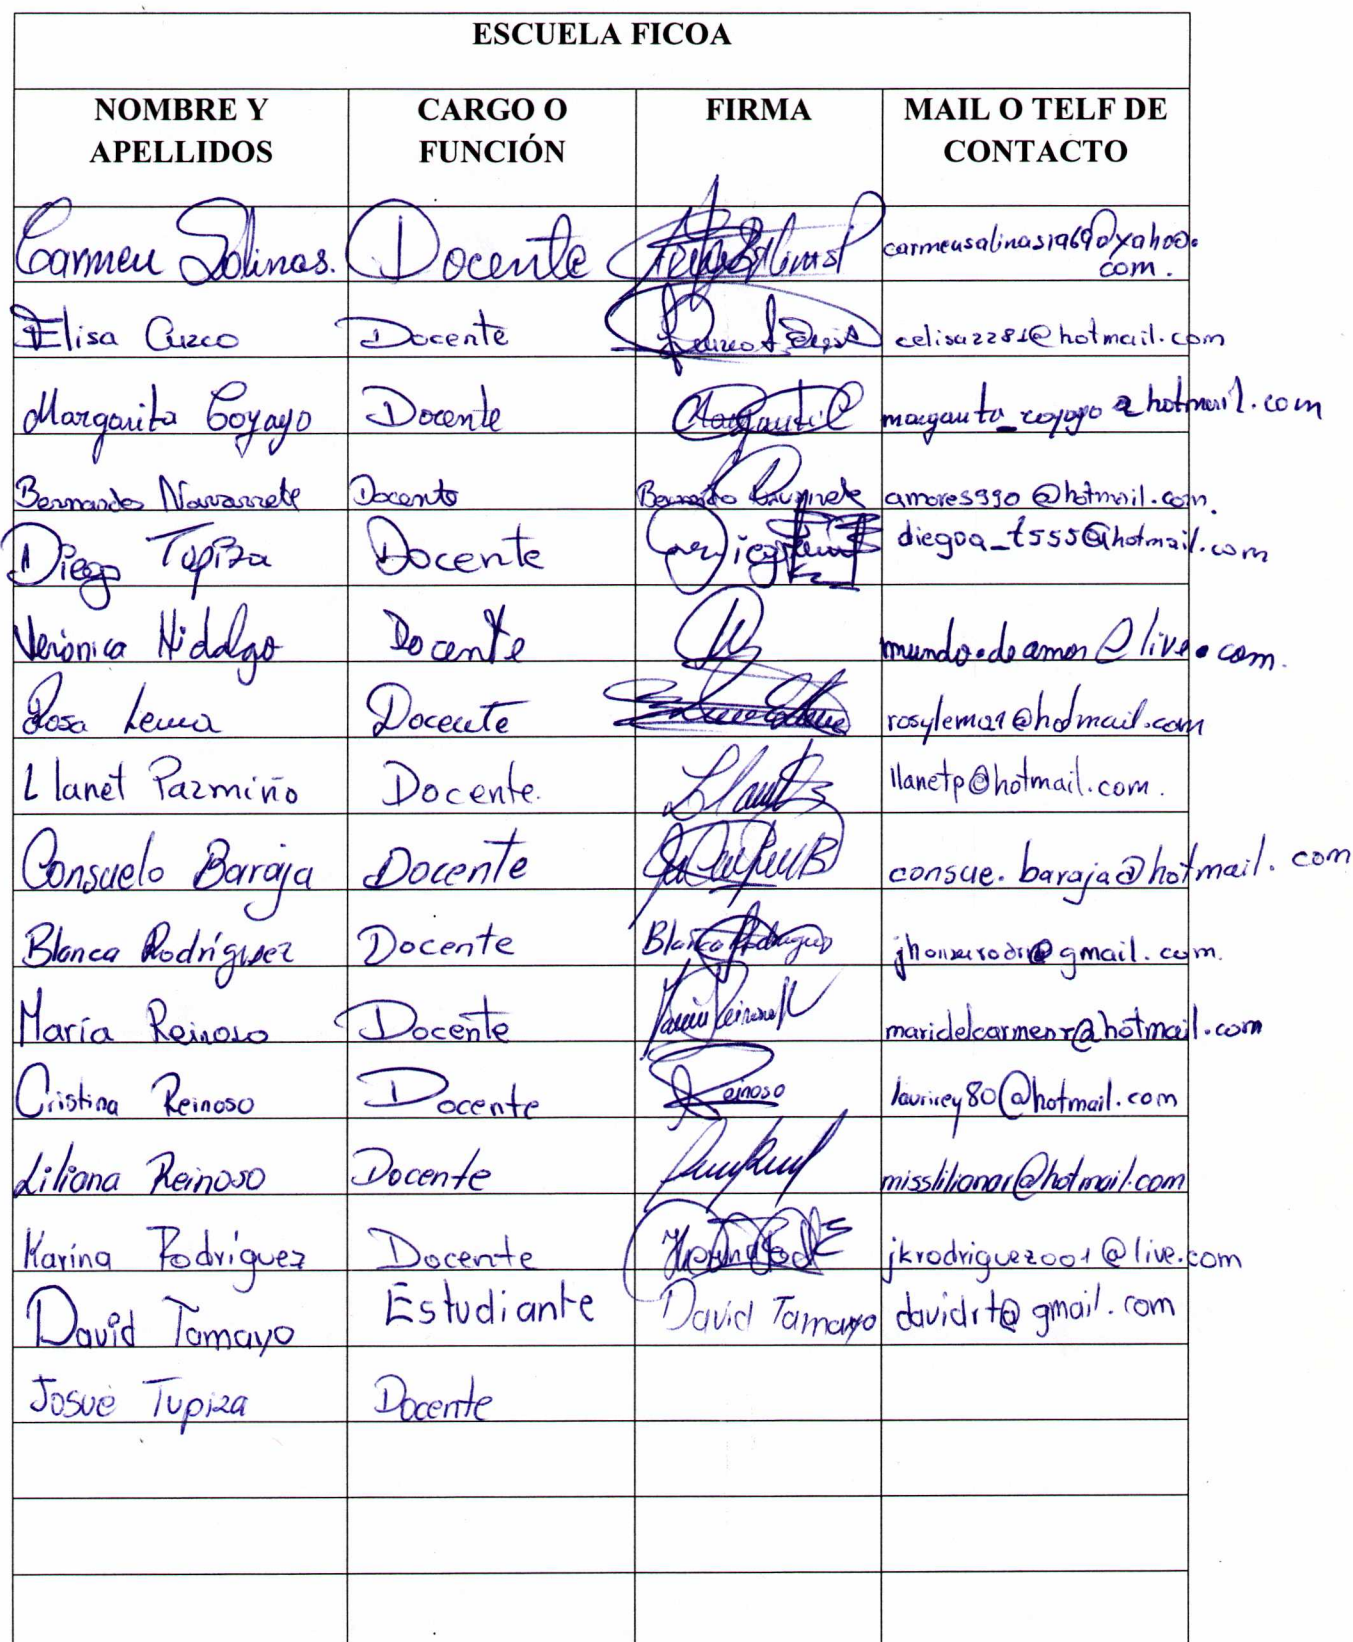 ESCUELA FICOA
NOMBRE Y APELLIDOS CARGO O FUNCIÓN FIRMA MAIL O TELF DE CONTACTO
Carmen Salinas. Docente carmensalinas1969@yahoo.com.
Elisa Cuzco Docente celisa2281@hotmail.com
Margarita Coyago Docente margarita_coyago@hotmail.com
Bernardo Navarrete Docente amores990@hotmail.com.
Diego Tupiza Docente diegoa_t555@hotmail.com
Verónica Hidalgo Docente mundo.deamor@live.com.
Rosa Lema Docente rosylema1@hotmail.com
Llanet Pazmiño Docente. llanetp@hotmail.com.
Consuelo Baraja Docente consue.baraja@hotmail.com
Blanca Rodríguez Docente Blanca Rodríguez @gmail.com.
María Reinoso Docente maridelcarmenr@hotmail.com
Cristina Reinoso Docente Reinoso @hotmail.com
Liliana Reinoso Docente misslilianar@hotmail.com
Karina Rodríguez Docente jkrodriguez001@live.com
David Tamayo Estudiante David Tamayo davidrt@gmail.com
Josué Tupiza Docente